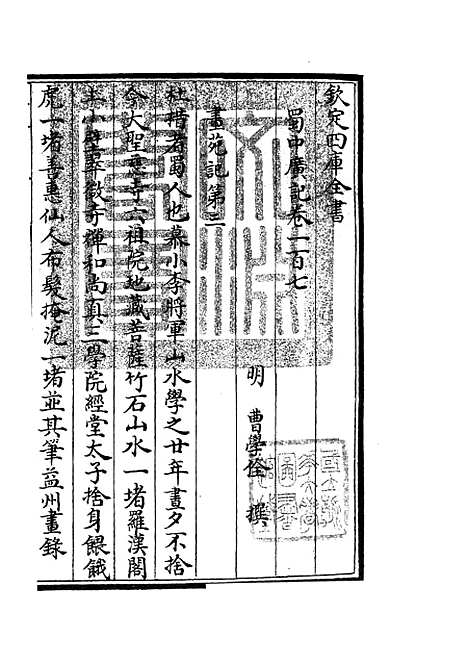 欽定四庫全書
蜀中廣記卷一百七
明 曹學佺 撰
畫苑記第三
杜措者蜀人也慕小李將軍山水學之廿年晝夕不捨
今大聖慈寺六祖院地藏菩薩竹石山水一堵羅漢閣
上小壁翠微寺禪和尚真三學院經堂太子捨身餵餓
虎一堵善惠仙人布髮掩泥一堵並其筆益州畫錄